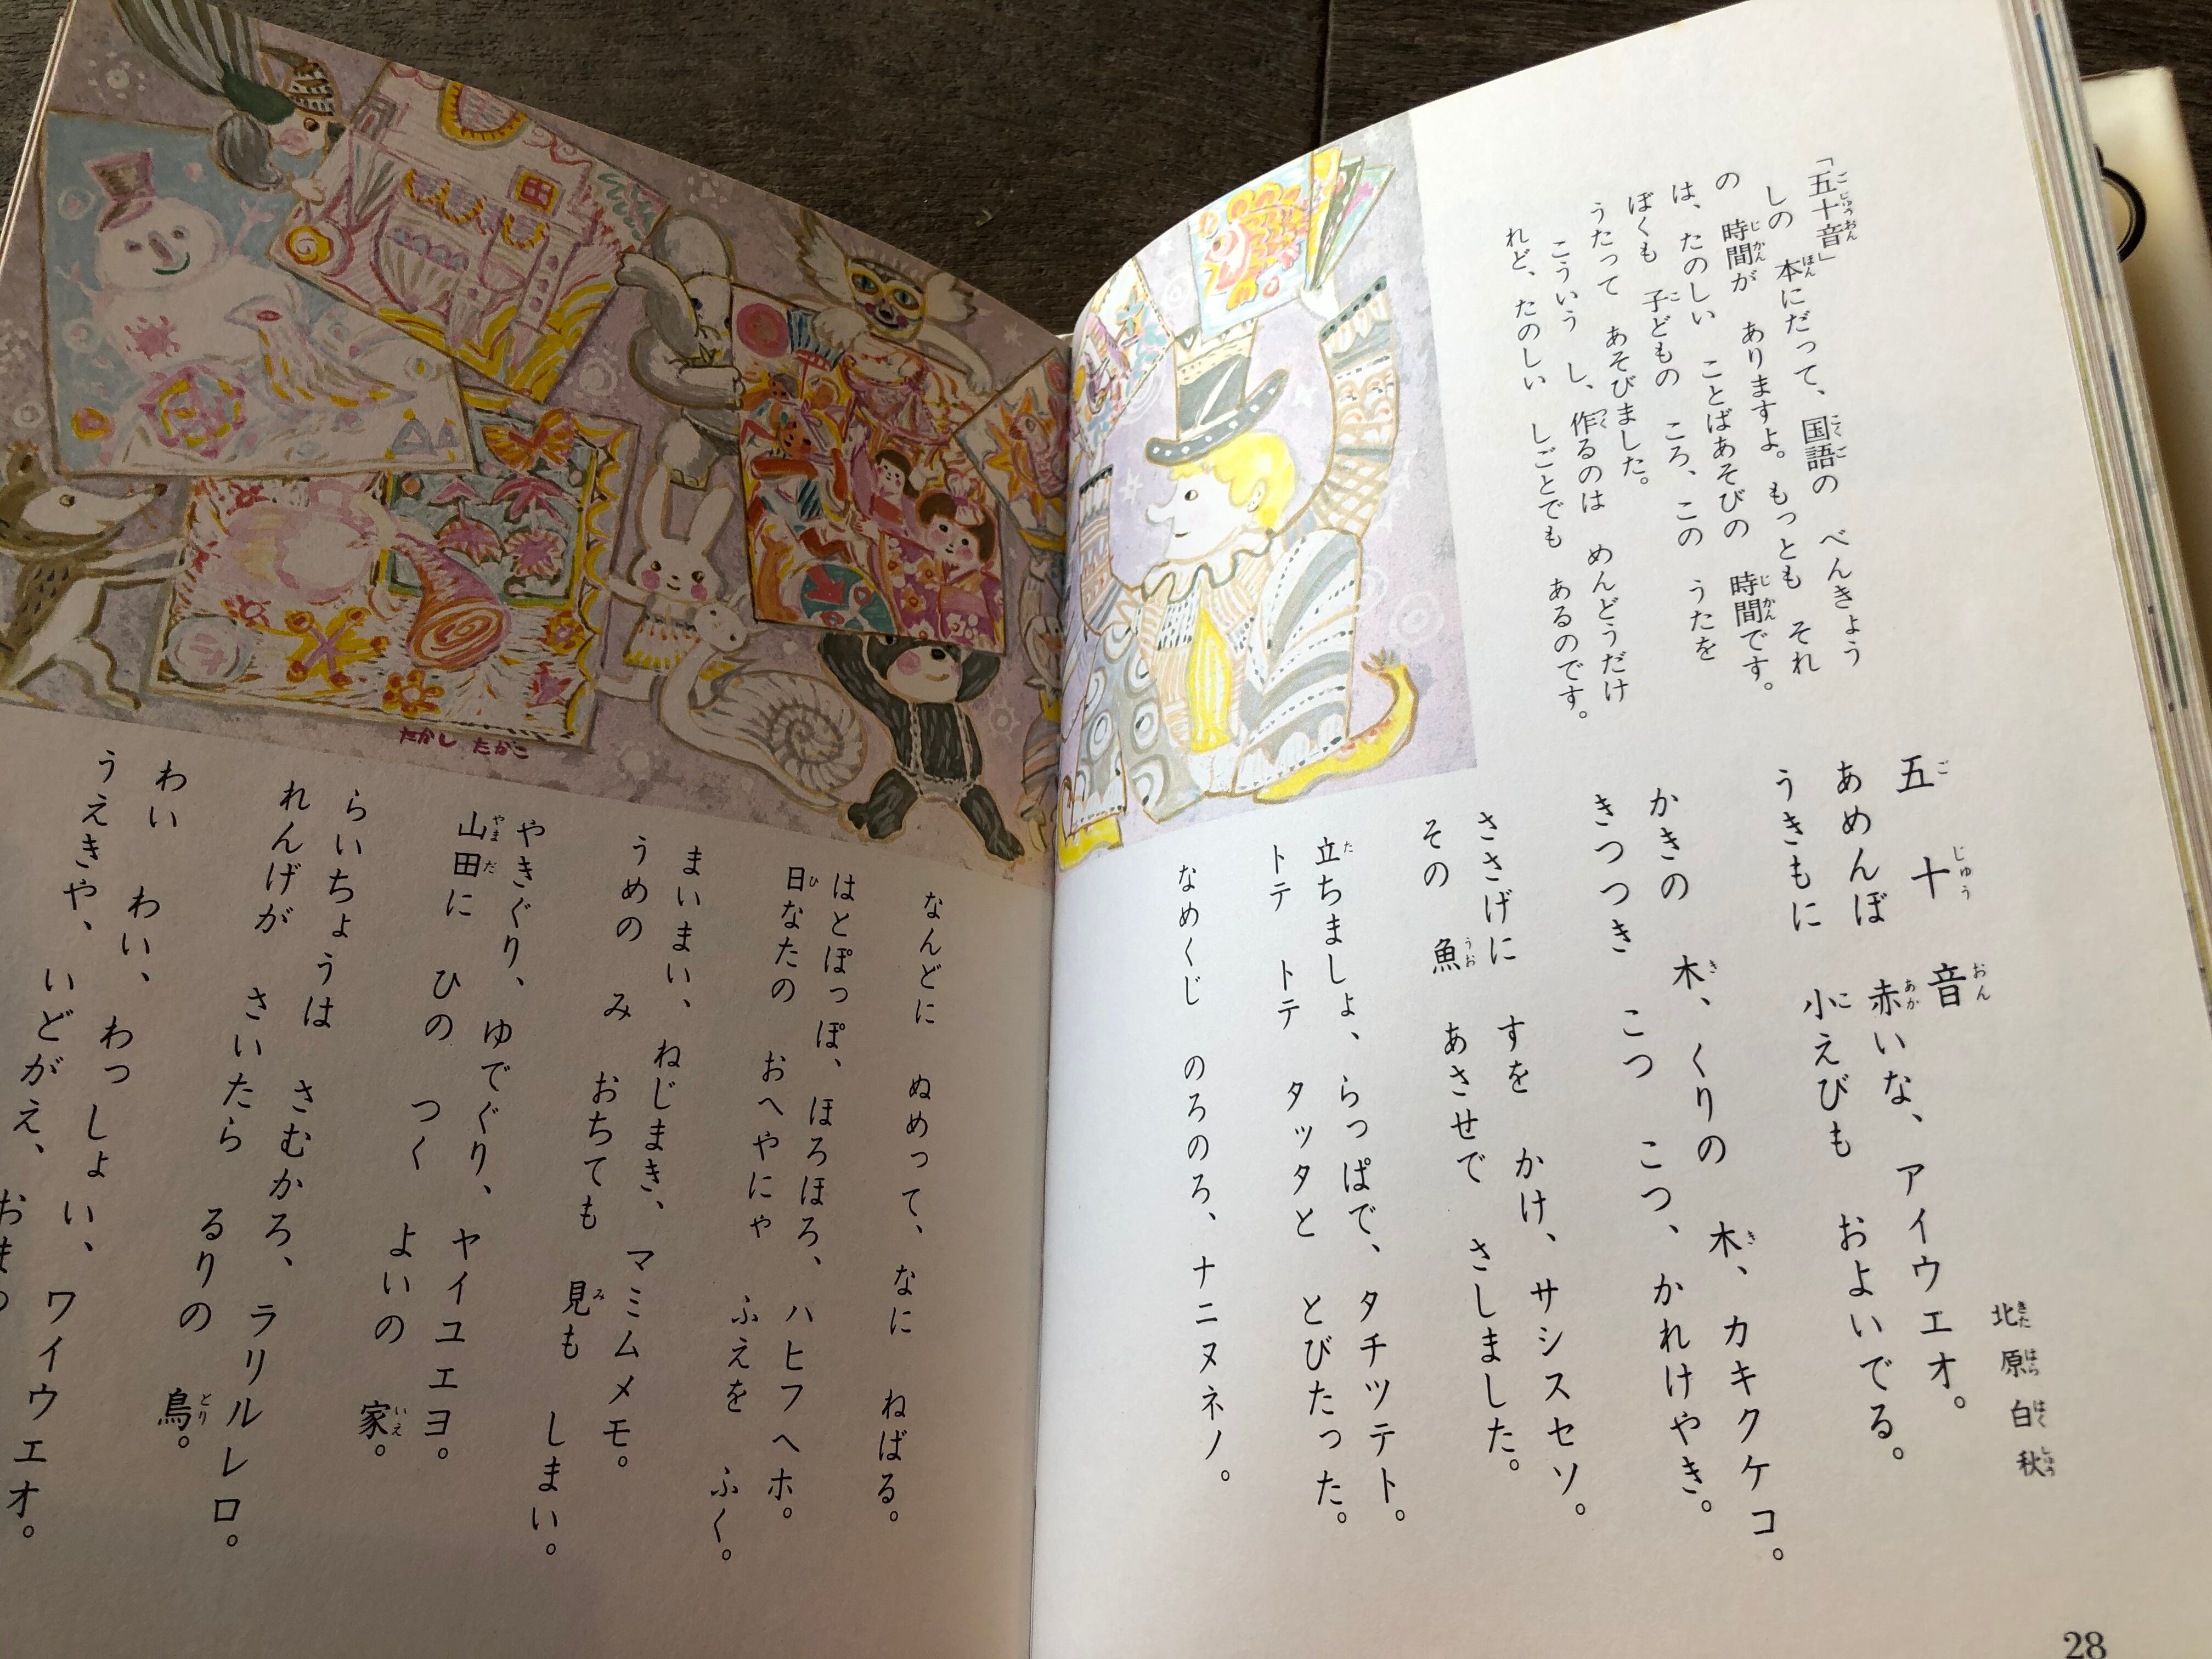 「五十音」
しの 本にだって、国語の べんきょう
の 時間が ありますよ。もっとも それ
は、たのしい ことばあそびの 時間です。
ぼくも 子どもの ころ、この うたを
うたって あそびました。
こういう し、作るのは めんどうだけ
れど、たのしい しごとでも あるのです。
五十音
北原白秋
あめんぼ 赤いな、アイウエオ。
うきもに 小えびも およいでる。
かきの 木、くりの 木、カキクケコ。
きつつき こつ こつ、かれけやき。
ささげに すを かけ、サシスセソ。
その 魚 あさせで さしました。
立ちましょ、らっぱで、タチツテト。
トテ トテ タッタと とびたった。
なめくじ のろのろ、ナニヌネノ。
なんどに ぬめって、なに ねばる。
はとぽっぽ、ほろほろ、ハヒフヘホ。
日なたの おへやにゃ ふえを ふく。
まいまい、ねじまき、マミムメモ。
うめの み おちても 見も しまい。
やきぐり、ゆでぐり、ヤイユエヨ。
山田に ひの つく よいの 家。
らいちょうは さむかろ、ラリルレロ。
れんげが さいたら るりの 鳥。
わい わい、わっしょい、ワイウエオ。
うえきや、いどがえ、
たかし たかこ
28